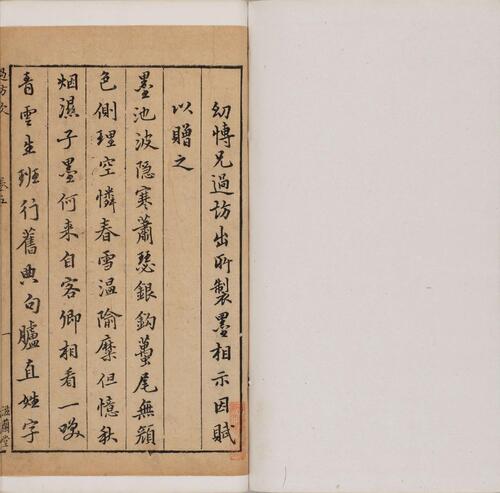 幼博兄過訪出所製墨相示因賦
以贈之
墨池波隐寒蕭瑟銀鈎蠆尾無顏
色側理空憐春雪温隃糜但憶秋
烟濕子墨何来自客卿相看一㗛
青雲生班行舊典句臚直姓字
卷五
一